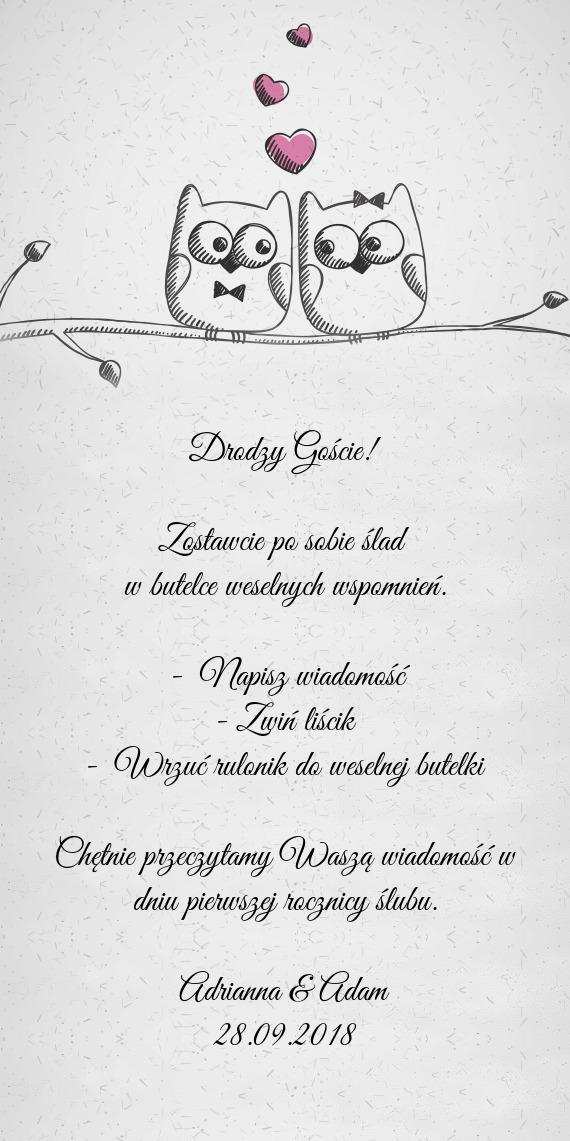 Drodzy Goście!
Zostawcie po sobie ślad
w butelce weselnych wspomnień.
- Napisz wiadomość
- Zwiń liścik
- Wrzuć rulonik do weselnej butelki
Chętnie przeczytamy Waszą wiadomość w
dniu pierwszej rocznicy ślubu.
Adrianna & Adam
28.09.2018